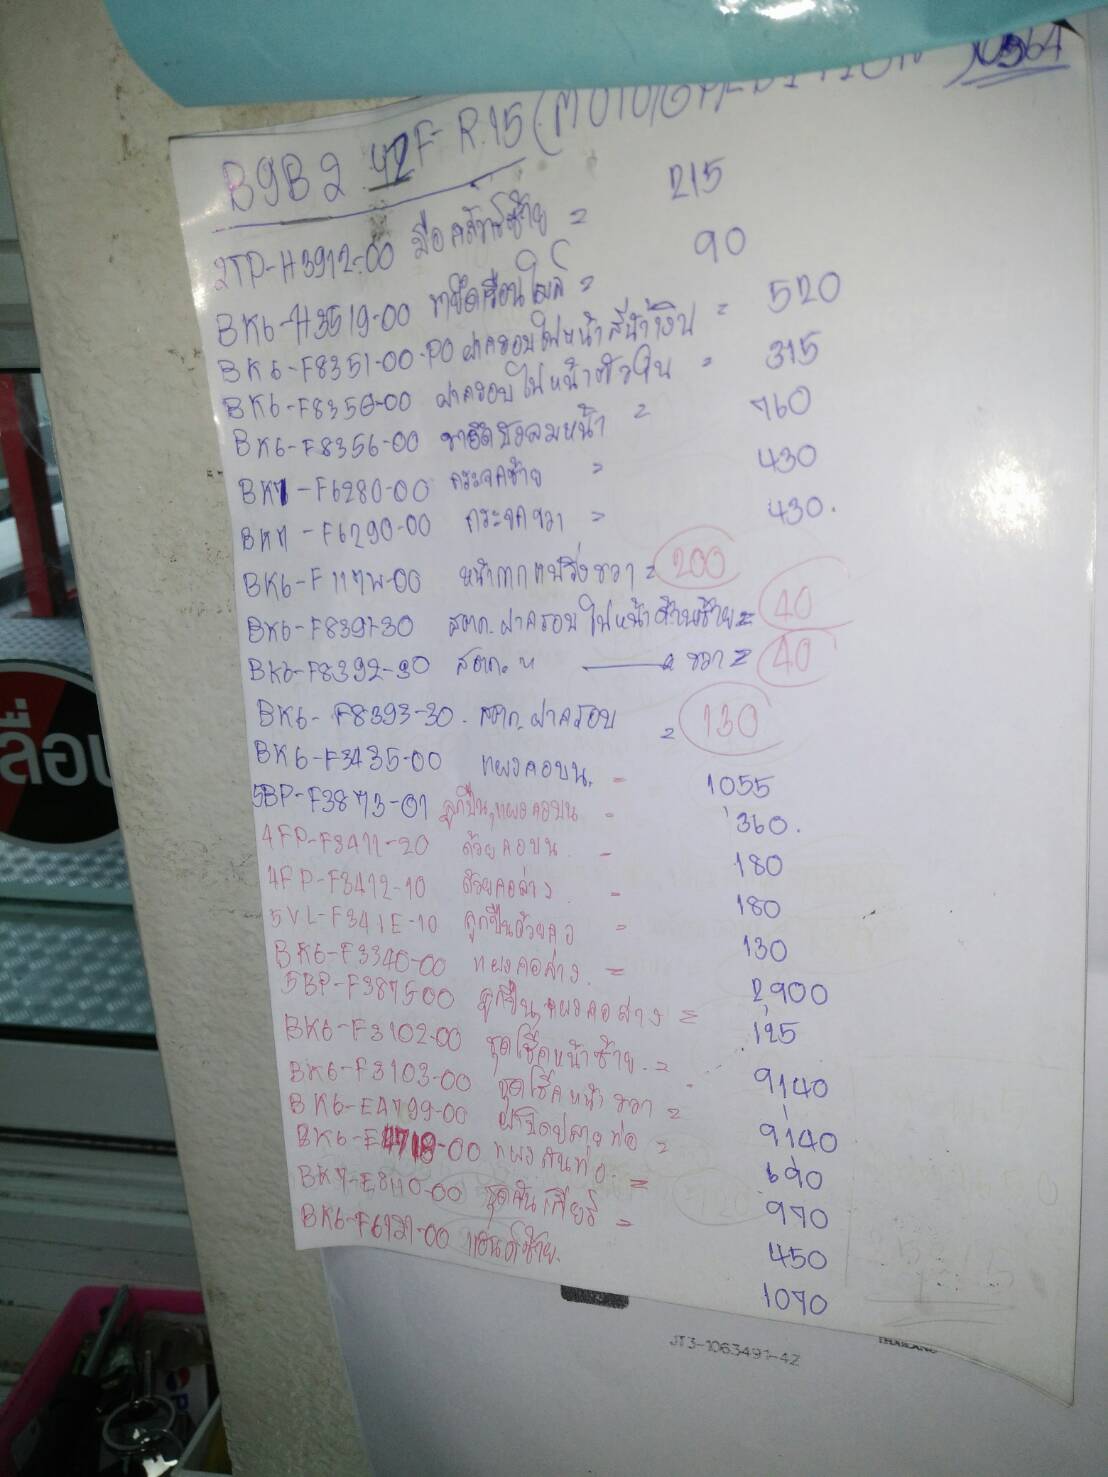 B9B2 42F R.15 (
2TP-H3912-00 มือคลัทช์ซ้าย = 215
BK6-H3519-00 ขายึดเรือนไมล์ = 90
BK6-F8351-00-P0 ฝาครอบไฟหน้าสีน้ำเงิน = 520
BK6-F835G-00 ฝาครอบไฟหน้าตัวใน = 315
BK6-F8356-00 ขายึดบังลมหน้า = 760
BK7-F6280-00 กระจกซ้าย = 430
BK7-F6290-00 กระจกขวา = 430.
BK6-F117W-00 ขวา = 200
BK6-F8391-30 สตก. ฝาครอบไฟหน้าด้านซ้าย = 40
BK6-F8392-30 สตก. " ——— " ขวา = 40
BK6-F8393-30. สตก. ฝาครอบ = 130
BK6-F3435-00 แผงคอบน. = 1055
5BP-F3873-01 ลูกปืนแผงคอบน = 360.
4FP-F3411-20 ถ้วยคอบน = 180
4FP-F3412-10 ถ้วยคอล่าง = 180
5VL-F341E-10 ลูกปืนถ้วยคอ = 130
BK6-F3340-00 แผงคอล่าง = 2900
5BP-F3875-00 ลูกปืนแผงคอล่าง = 125
BK6-F3102-00 ชุดโช๊คหน้าซ้าย. = 9140
BK6-F3103-00 ชุดโช๊คหน้าขวา = 9140
BK6-E4799-00 ฝาปิดปลายท่อ = 690
BK6-E4718-00 แผงกันท่อ. = 970
BK7-E8110-00 ชุดคันเกียร์ = 450
BK6-F6121-00 แฮนด์ซ้าย. 1070
JT3-1063491-42
THAILAND
ลื่อน